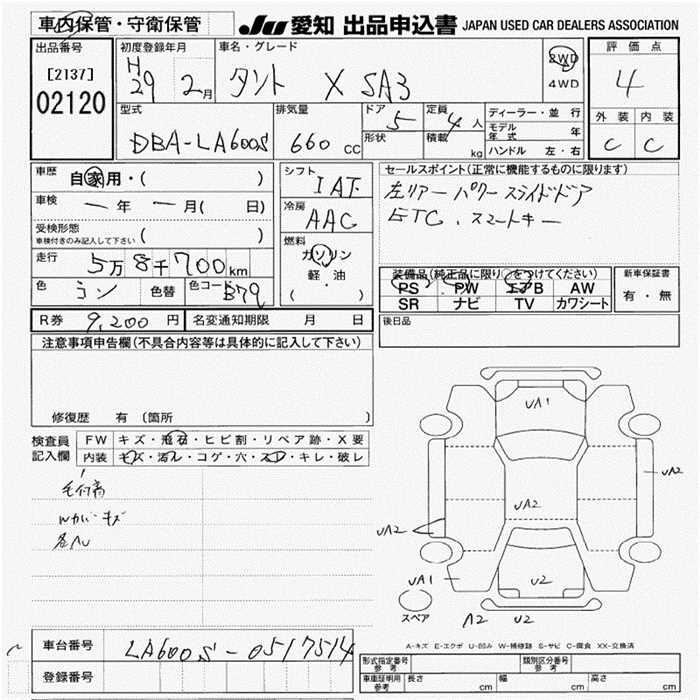 車内保管・守衛保管 JU 愛知 出品申込書 JAPAN USED CAR DEALERS ASSOCIATION
出品番号 初度登録年月 車名・グレード 2WD 評価点
[2137] H29 2月 タント X SA3 4WD 4
02120
型式 排気量 ドア 5 定員 4人 ディーラー・並行 外装 内装
DBA-LA600S 660 CC 形状 積載 kg モデル年式 年 C C
ハンドル 左・右
車歴 自家用・( ) シフト IAT セールスポイント(正常に機能するものに限ります)
車検 ー年 ー月( 日) 冷房 AAC 左リアーパワースライドドア
受検形態 ( ) ETC、スマートキー
車検付きのみ記入して下さい
燃料 ガソリン
走行 5万8千700km 軽・油 装備品(純正品に限り○をつけてください) 新車保証書
色 コン 色替 色コード B79 ( ) PS PW エアB AW 有・無
SR ナビ TV カワシート
R券 9,200円 名変通知期限 月 日 後日品
注意事項申告欄(不具合内容等は具体的に記入して下さい)
修復歴 有 (箇所
検査員記入欄 FW キズ・飛石・ヒビ割・リペア跡・X要
内装 キズ・汚レ・コゲ・穴・スレ・キレ・破レ
各ヘコ
UA1
UA2
UA2
UA2
UA1
U2
スペア A2 U2
A-キズ E-エクボ U-凹み W-補修跡 S-サビ C-腐食 XX-交換済
車台番号 LA600S-0517514
登録番号
形式指定番号 参考 類別区分番号 参考
車庫証明用 参考 長さ cm 幅 cm 高さ cm